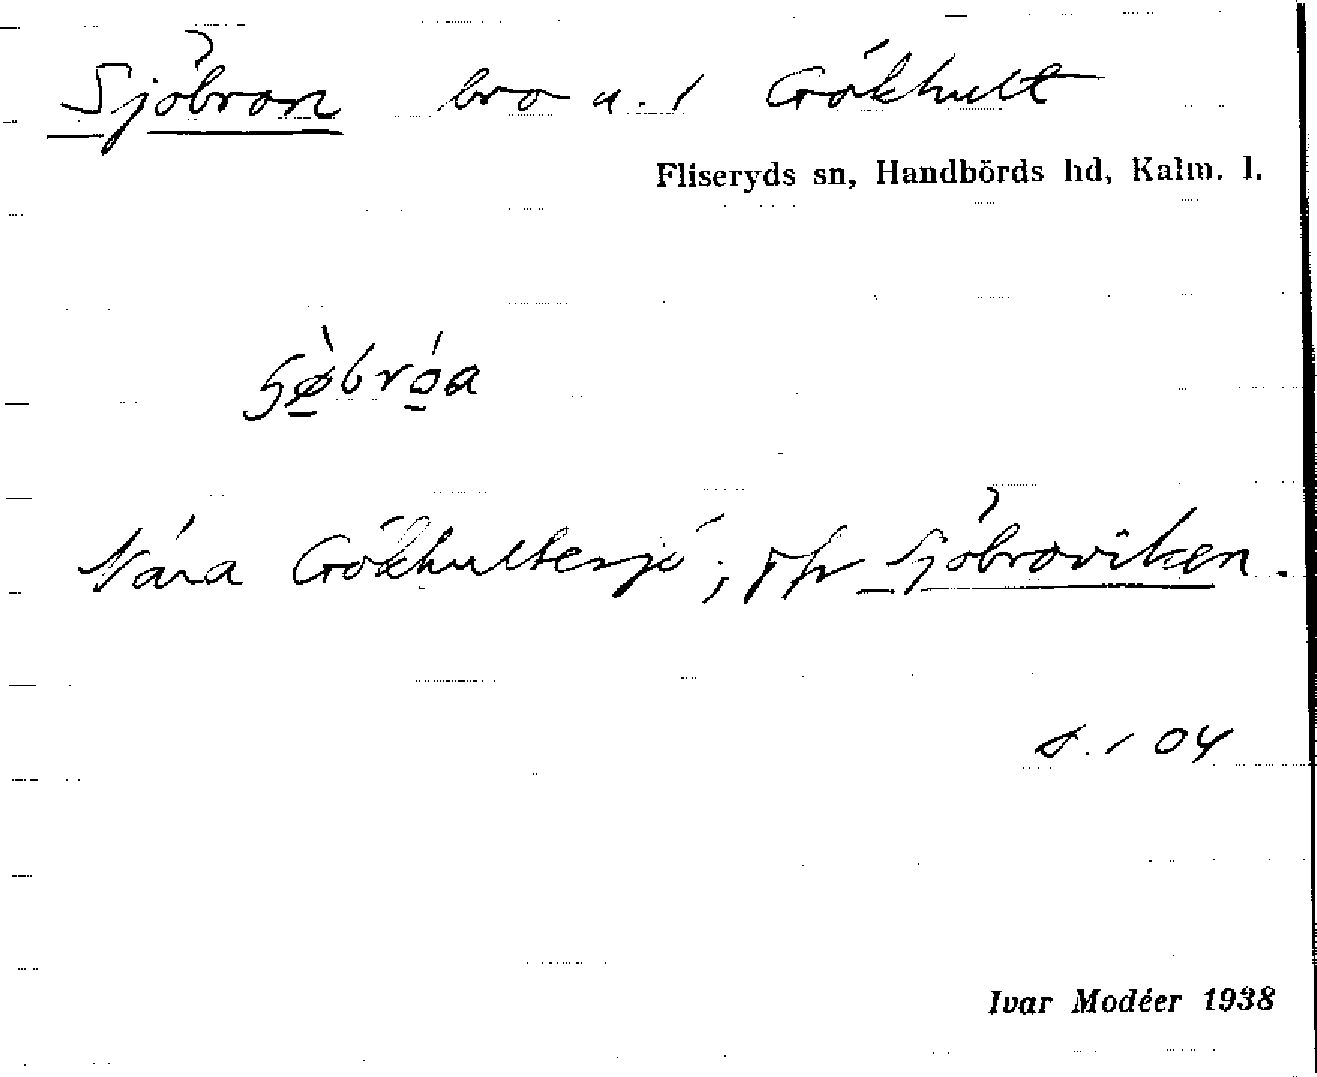 Sjöbron bro u. / Gökhult
Fliseryds sn, Handbörds hd, Kalm. l.
Nära Gökhultesjö; jfr Sjöbroviken.
Ivar Modéer 1938